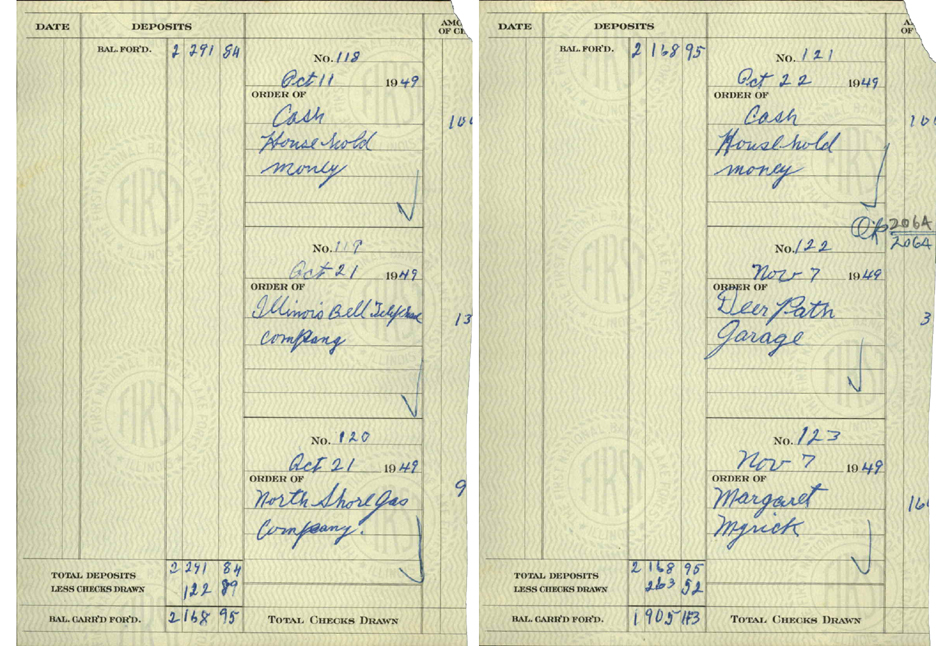 DATE DEPOSITS
BAL. FOR'D. 2 291 84
No. 118
Oct 11 1949
ORDER OF
Cash 100
Household
money
No. 119
Oct 21 1949
ORDER OF
Illinois Bell Telephone 13
company
No. 120
Oct 21 1949
ORDER OF
North Shore Gas 9
Company.
TOTAL DEPOSITS 2 291 84
LESS CHECKS DRAWN 122 89
BAL. CARR'D FOR'D. 2 168 95 TOTAL CHECKS DRAWN
DATE DEPOSITS
BAL. FOR'D. 2 168 95
No. 121
Oct 22 1949
ORDER OF
Cash 100
Household
money
2064
2064
No. 122
Nov 7 1949
ORDER OF
Deer Path 3
Garage
No. 123
Nov 7 1949
ORDER OF
Margaret 160
TOTAL DEPOSITS 2 168 95
LESS CHECKS DRAWN 263 52
BAL. CARR'D FOR'D. 1 905 43 TOTAL CHECKS DRAWN